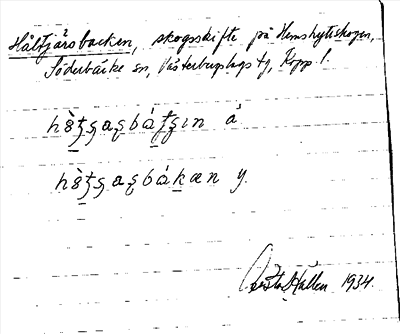 Håltjärsbacken, skogsskifte på Hemshytteskogen,
Söderbärke sn, Västerbergslags tg, Kopp. l.
hò̱ţşaşbáţşın á
hò̱ţşaşbáḵæn y.
Gösta Hallen 1934.